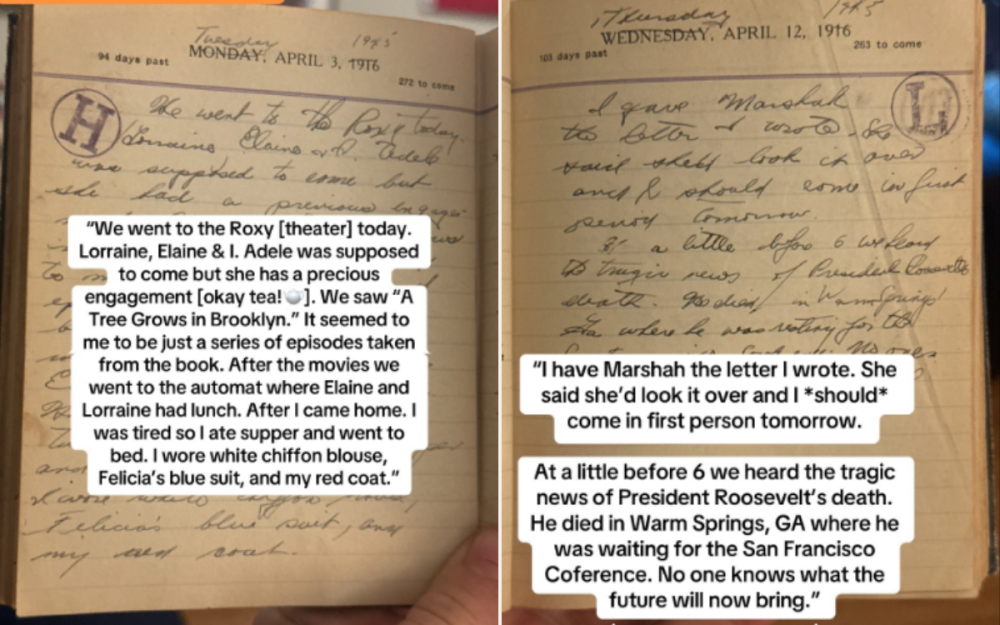 Tuesday 1945
MONDAY, APRIL 3, 1916
94 days past
272 to come
H
We went to the Roxy today.
Lorraine, Elaine & I. Adele
was supposed to come but
she had a previous engage-
“We went to the Roxy [theater] today.
Lorraine, Elaine & I. Adele was supposed
to come but she has a precious
engagement [okay tea!🍵]. We saw “A
Tree Grows in Brooklyn.” It seemed to
me to be just a series of episodes taken
from the book. After the movies we
went to the automat where Elaine and
Lorraine had lunch. After I came home. I
was tired so I ate supper and went to
bed. I wore white chiffon blouse,
Felicia’s blue suit, and my red coat.”
I wore white chiffon blouse
Felicia's blue suit, and
my red coat.
Thursday 1945
WEDNESDAY, APRIL 12, 1916
103 days past
263 to come
L
I gave Marshah
the letter I wrote. She
said she'd look it over
and I should come in first
period tomorrow.
a little before 6 we heard
the tragic news of President Roosevelt's
death. He died in Warm Springs
Ga where he was resting for the
No one
“I have Marshah the letter I wrote. She
said she’d look it over and I *should*
come in first person tomorrow.
At a little before 6 we heard the tragic
news of President Roosevelt’s death.
He died in Warm Springs, GA where he
was waiting for the San Francisco
Coference. No one knows what the
future will now bring.”